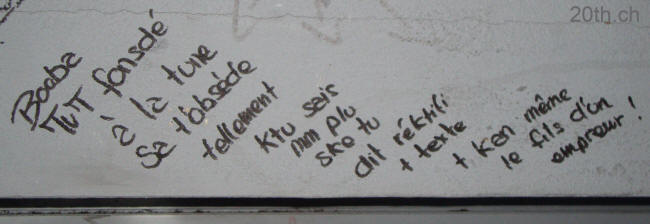 20th.ch
Booba
TuT fonsdé
à la tune
Sa t'obsède
tellement
Ktu sais
mm plu
ske tu
dit réktifi
+ texte
+ ken même
le fils d'un
empreur !